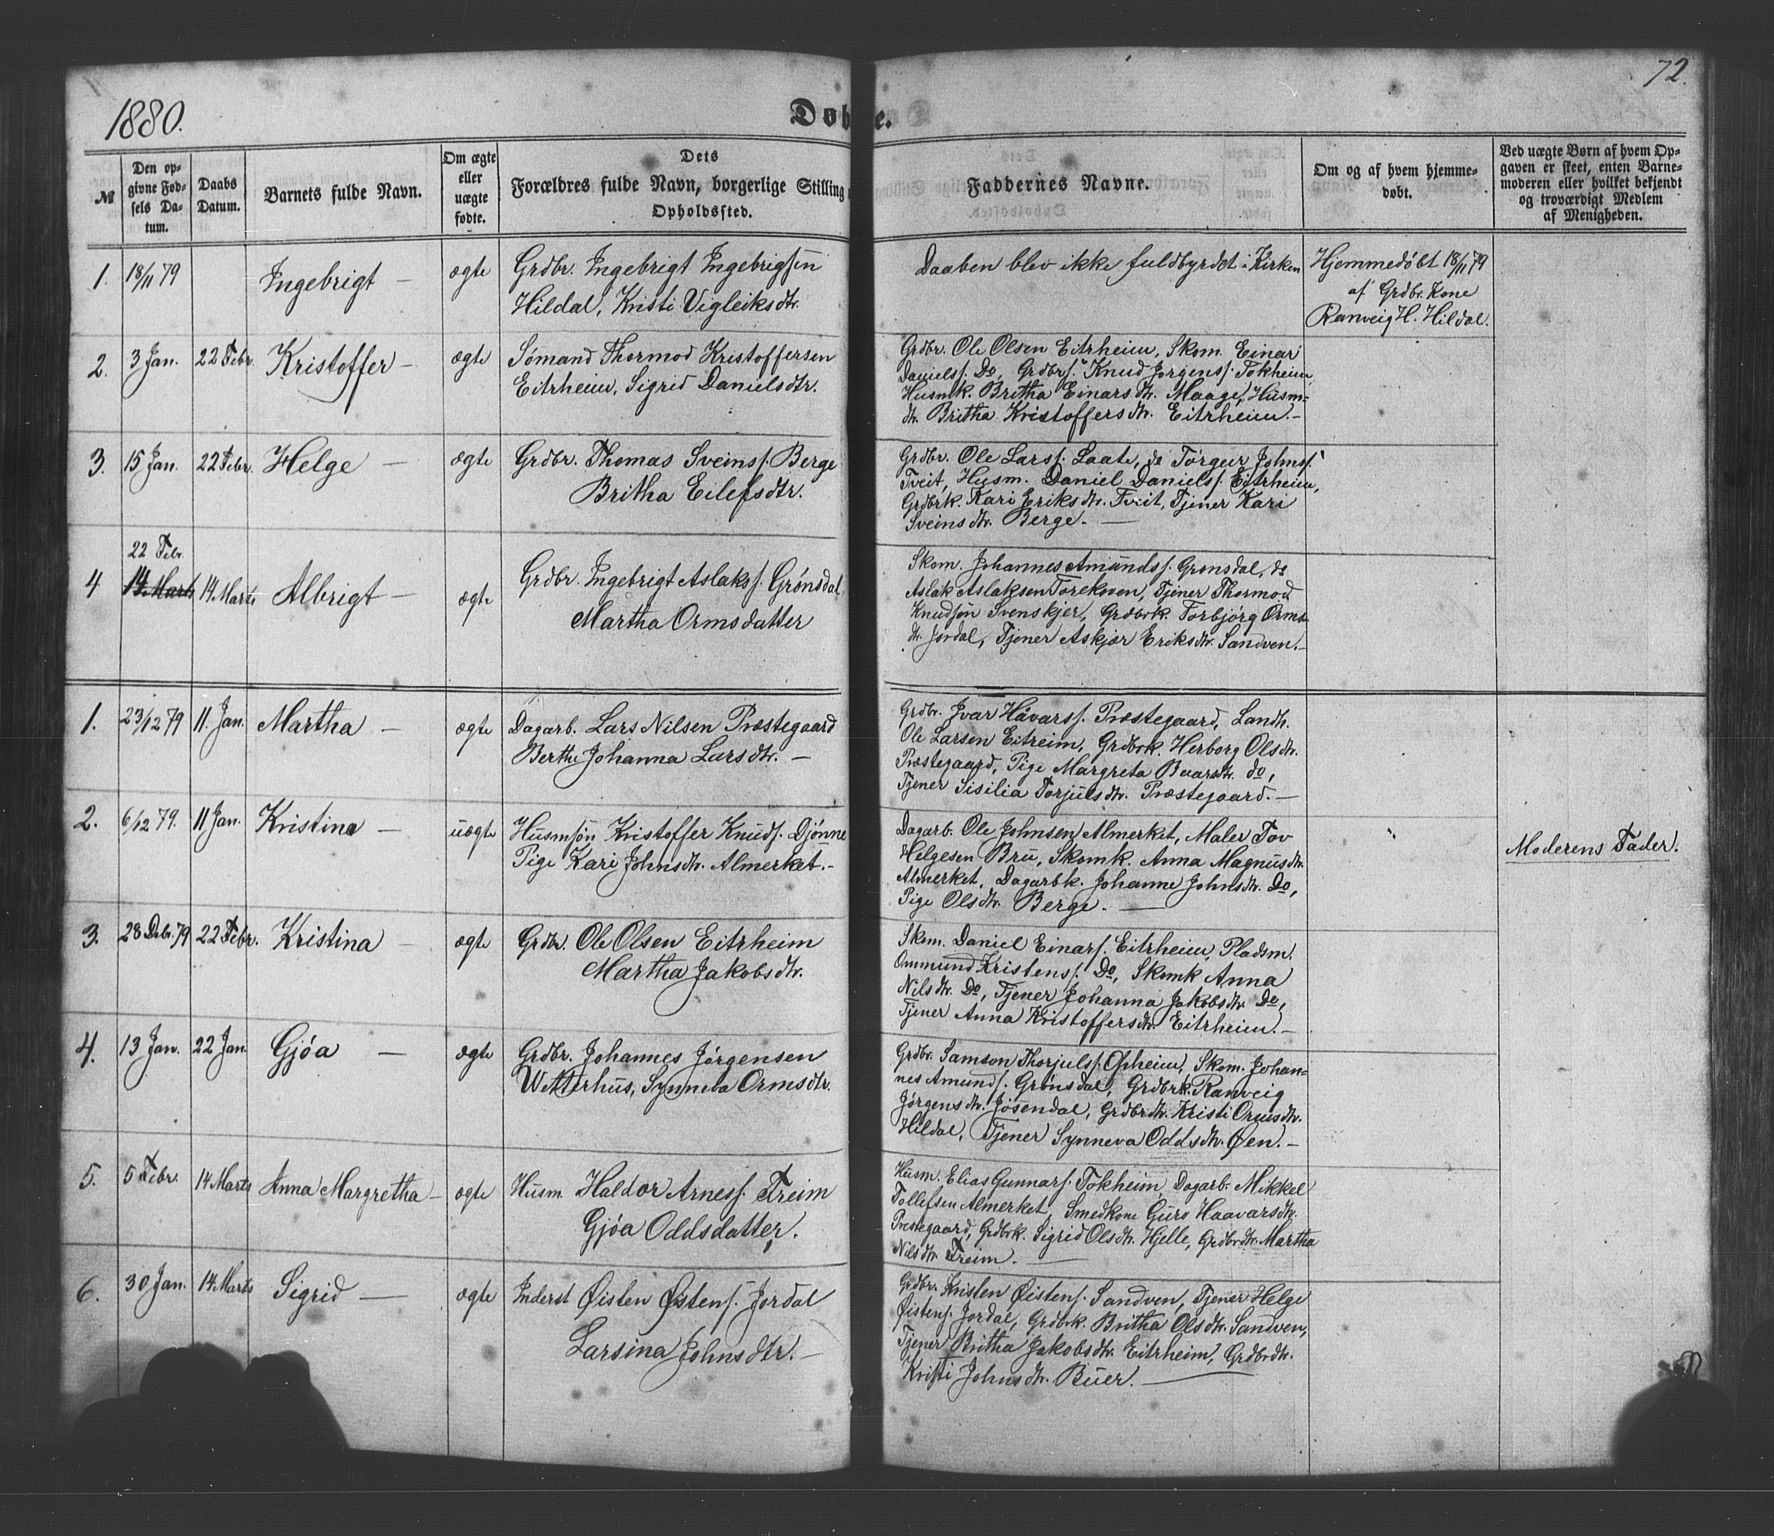 72.
1880.
Døbte.
№
Den opgivne Fødsels Datum.
Daabs Datum.
Barnets fulde Navn.
Om ægte eller uægte fødte.
Dets Forældres fulde Navn, borgerlige Stilling Opholdssted.
Faddernes Navne.
Om og af hvem hjemmedøbt.
Ved uægte Børn af hvem Opgaven er skeet, enten Barnemoderen eller hvilket bekjendt og troværdigt Medlem af Menigheden.
1. 18/11 79 Ingebrigt — ægte Grdbr. Ingebrigt Ingebrigtsen
Hildal, Kristi Vigleiksdtr.
Daaben blev ikke fuldbyrdet i Kirken
Hjemmedøbt 18/11 79
af Grdbr. Kone
Ranveig H. Hildal.
2. 3 Jan. 22 Febr. Kristoffer — ægte Sømand Thormod Kristoffersen
Eitrheim, Sigrid Danielsdtr.
Grdbr. Ole Olsen Eitrheim, Skom. Einar
Daniels. Do, Grdbrs. Knud Jørgens. Tokheim,
Husmk. Britha Einarsdtr. Maage, Husm-
dtr. Britha Kristoffersdtr. Eitrheim. —
3. 15 Jan. 22 Febr. Helge — ægte Grdbr. Thomas Sveins. Berge
Britha Eilefsdtr.
Grdbr. Ole Lars. Laate, do Törger Johns.
Tveit, Husm. Daniel Daniels. Eitrheim,
Grdbrk. Kari Eriksdtr. Tveit, Tjener Kari
Sveinsdtr. Berge. —
22 Febr.
4 14 Marts 14. Marts Albrigt — ægte Grdbr. Ingebrigt Aslaks. Grønsdal
Martha Ormsdatter
Skom. Johannes Amunds. Grønsdal, do
Aslak Aslaksen Torekoven, Tjener Thormod
Knudsøn Svenskjer, Grdbrk. Torbjørg Orms-
dtr. Jordal, Tjener Askjær Eriksdtr. Sandven. —
1. 23/12 79 11. Jan. Martha — ægte Dagarb. Lars Nilsen Præstegaard
Berthe Johanna Larsdtr. —
Grdbr. Ivar Håvars. Præstegaard, Landh.
Ole Larsen Eitreim, Grdbrk. Herborg Olsdtr.
Præstegaard, Pige Margreta Ivarsdtr. do,
Tjener Sisilia Torjulsdtr. Præstegaard. —
2. 6/12 79. 11 Jan. Kristina — uægte Husmsøn Kristoffer Knuds. Djønne
Pige Kari Johnsdtr. Almerket. —
Dagarb. Ole Johnsen Almerket, Maler Tov
Helgesen Bru, Skomk. Anna Magnusdtr.
Almerket, Dagarbk. Johanne Johnsdtr. Do,
Pige Olsdtr. Berge. —
Moderens Fader.
3. 28 Debr. 79 22 Febr. Kristina — ægte Grdbr. Ole Olsen Eitrheim
Martha Jakobsdtr.
Skom. Daniel Einars. Eitrheim, Pladsm.
Ommund Kristens. Do, Skomk Anna
Nilsdtr. Do, Tjener Johanna Jakobsdtr. Do,
Tjener Anna Kristoffersdtr. Eitrheim. —
4. 13 Jan. 22 Jan. Gjøa — ægte Grdbr. Johannes Jørgensen
Wetterhus, Synneva Ormsdtr.
Grdbr. Samson Thorjuls. Opheim, Skom. Johan-
nes Amunds. Grønsdal, Grdbrk. Ranveig
Jørgensdtr. Jøsendal, Grdbrdtr. Kristi Ormsdtr.
Hildal, Tjener Synneva Oddsdtr. Øen. —
5. 5 Febr. 14. Marts Anna Margretha — ægte Husm. Haldor Arnes. Freim
Gjøa Oddsdatter.
Husm. Elias Gunnars. Tokheim, Dagarb. Mikkel
Tollefsen Almerket, Smedkone Guro Haavarsdtr.
Præstegaard, Grdbrk. Sigrid Olsdtr. Hjelle, Grdbrdtr. Martha
Nilsdtr. Freim. —
6. 30 Jan. 14. Marts Sigrid — ægte Inderst Øisten Østens. Jordal
Larsina Johnsdtr. —
Grdbr. Kristen Øistens. Sandven, Tjener Helge
Østens. Jordal, Grdbrk. Britha Olsdtr. Sandven,
Tjener Britha Jakobsdtr. Eitrheim, Grdbrdtr.
Kristi Johnsdtr. Buer. —